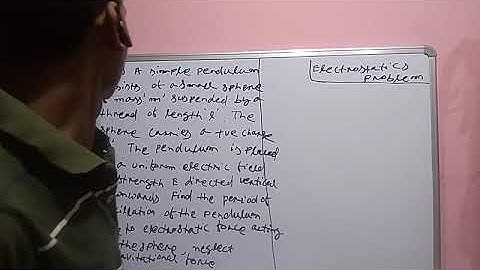 A simple pendulum
of a small sphere
mass 'm' suspended by a
thread of length 'l'. The
carries a +ve charge
The pendulum is placed
a uniform electric field
strength E directed vertical
Find the period of
of the pendulum
to electrostatic force acting
the sphere neglect
force
Electrostatics
Problem